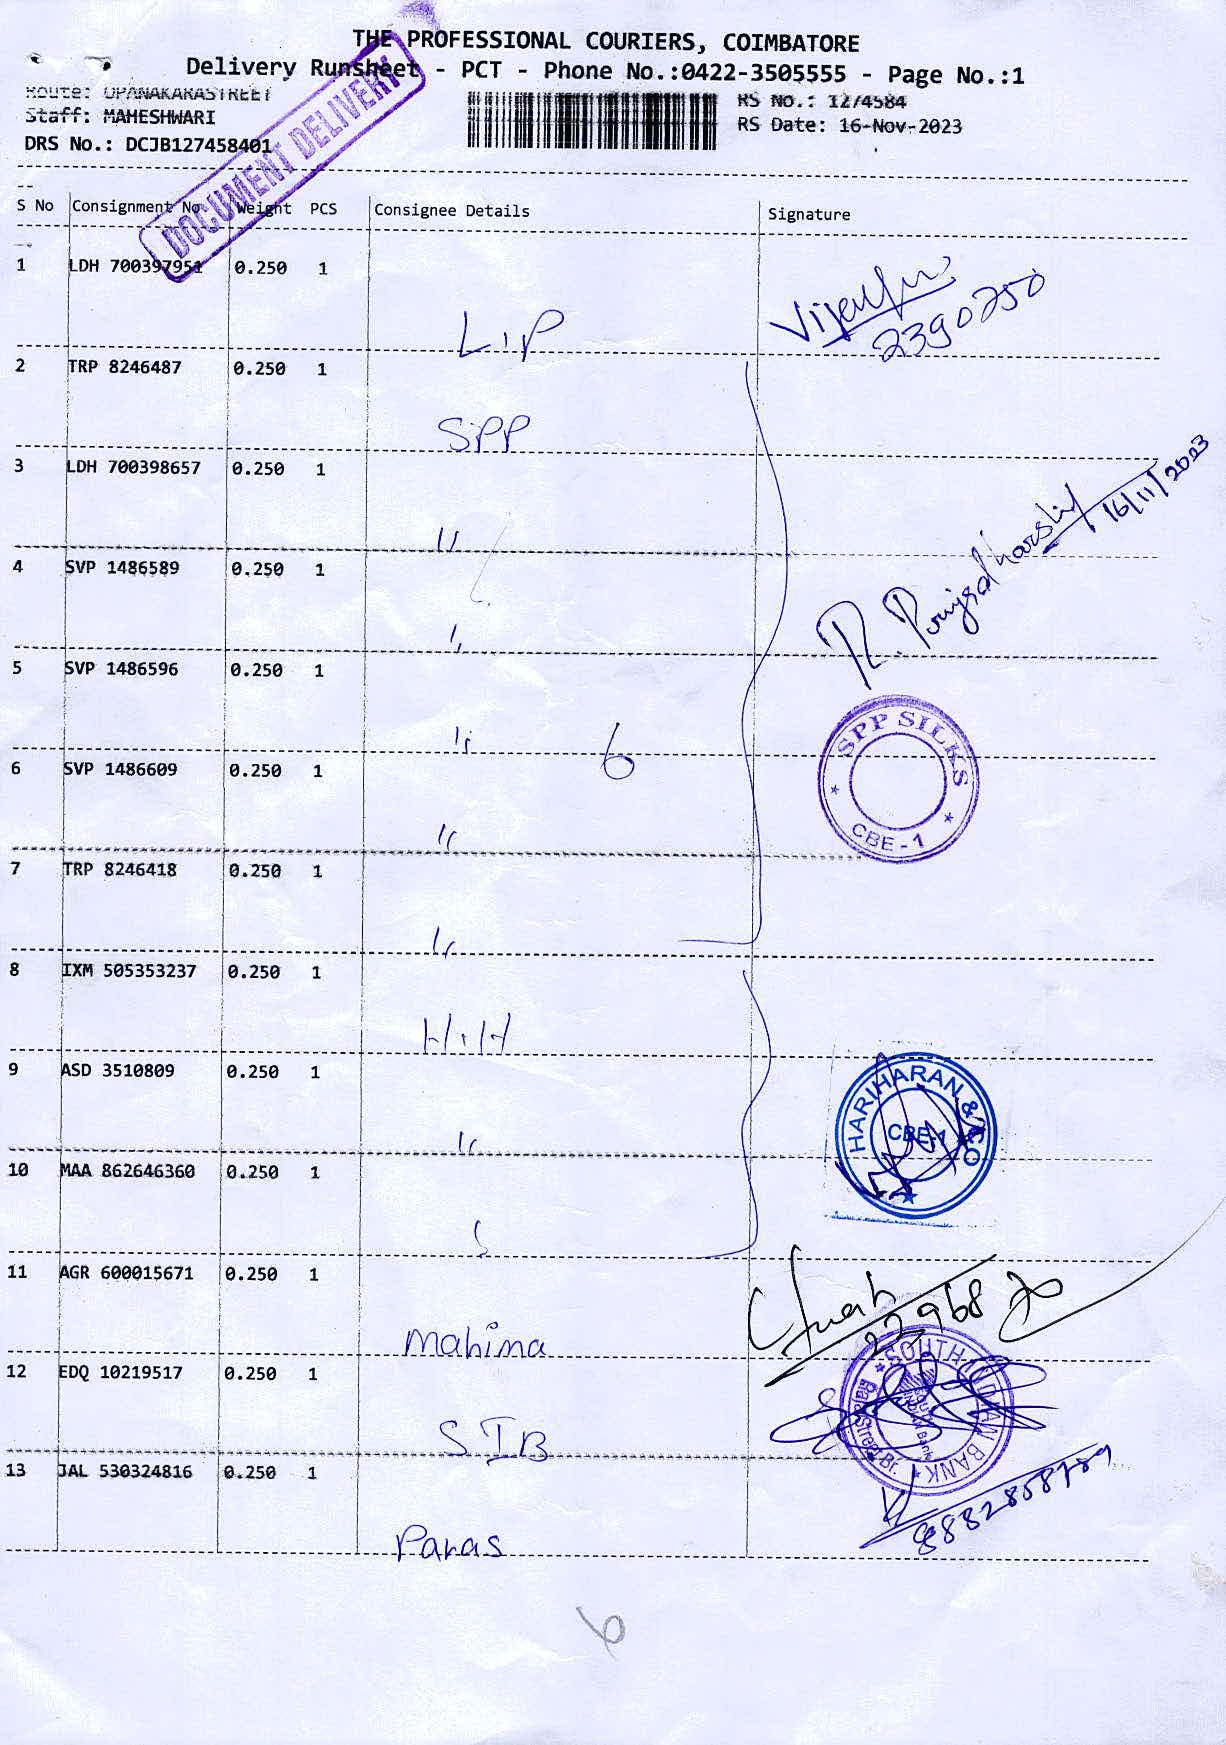 THE PROFESSIONAL COURIERS, COIMBATORE
Delivery Runsheet - PCT - Phone No.:0422-3505555 - Page No.:1
Route: OPANAKARASTREET
RS No.: 1274584
Staff: MAHESHWARI
RS Date: 16-Nov-2023
DRS No.: DCJB127458401
DOCUMENT DELIVERY
S No Consignment No Weight PCS Consignee Details Signature
1 LDH 700397951 0.250 1
LIP
2390250
2 TRP 8246487 0.250 1
SPP
3 LDH 700398657 0.250 1
"
R. Priyadharshini 16/11/2023
4 SVP 1486589 0.250 1
"
5 SVP 1486596 0.250 1
"
6
SPP SILKS
CBE - 1
6 SVP 1486609 0.250 1
"
7 TRP 8246418 0.250 1
"
8 IXM 505353237 0.250 1
H.H
9 ASD 3510809 0.250 1
"
HARIHARAN & CO
CBE-1
10 MAA 862646360 0.250 1
11 AGR 600015671 0.250 1
Mahima
12 EDQ 10219517 0.250 1
SIB
SOUTH INDIAN BANK
13 JAL 530324816 0.250 1
Paras
6